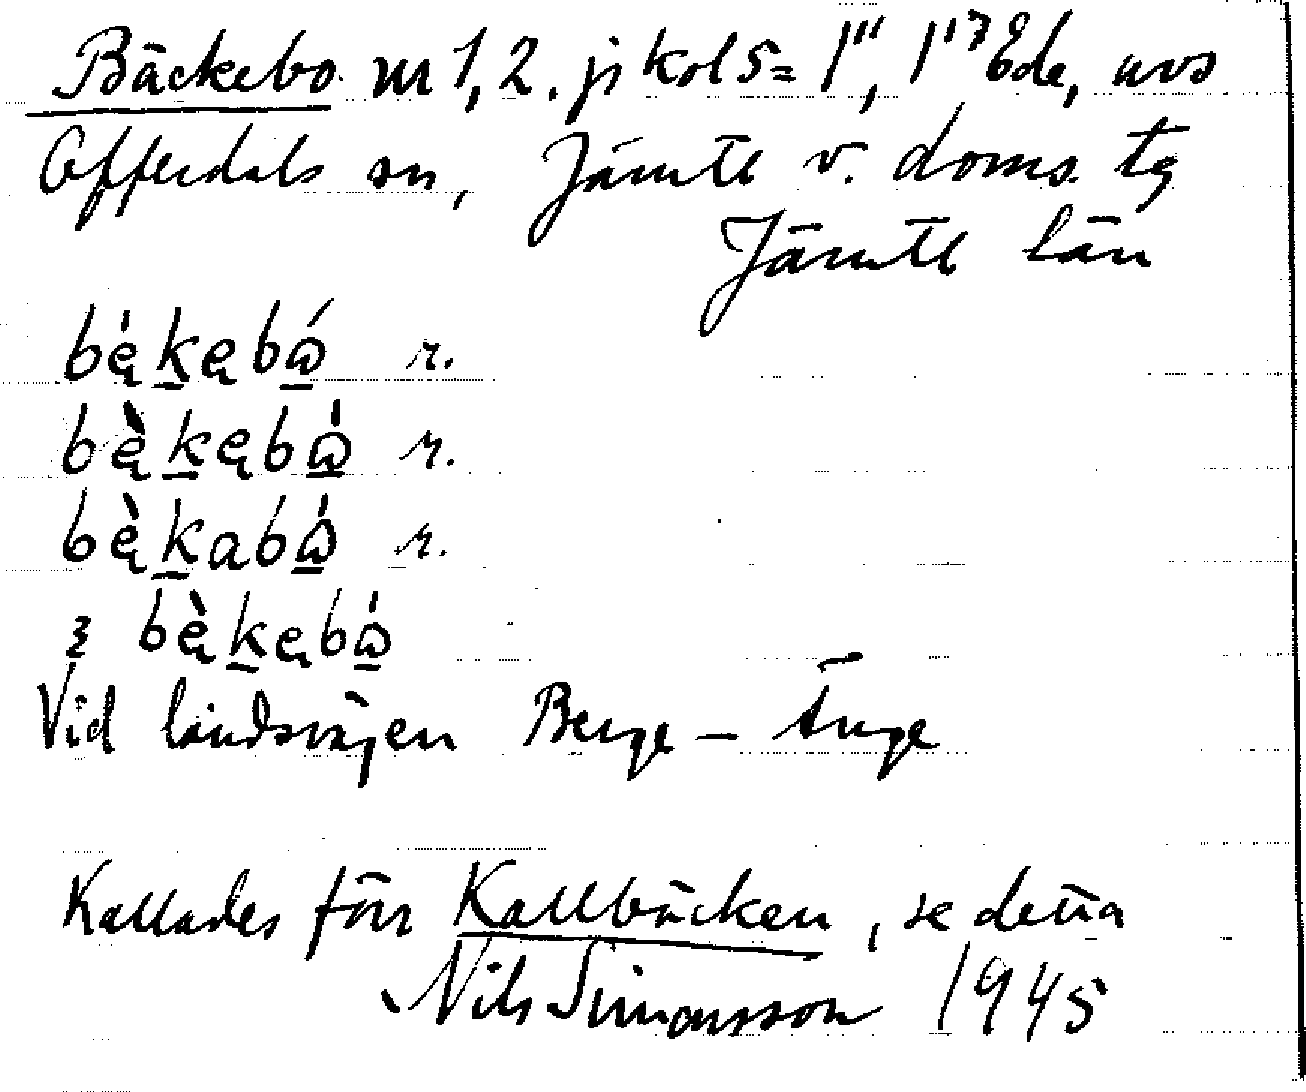 Bäckebo nr 1, 2. jr kol 5 = 1", 1"7 Ede, avs
Offerdals sn, Jämtl v. doms. tg
Jämtl län
bę̀k̲ębώ̲ r.
bę̀k̲ębώ̲ r.
bę̀k̲abώ̲ r.
bę̀k̲ębώ̲
Vid landsvägen Berge – Änge
Kallades förr Kallbäcken, se detta
Nils Simonsson 1945